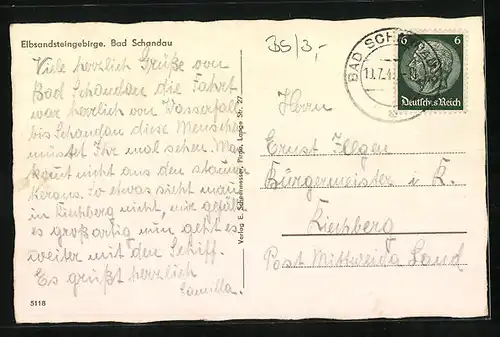 Elbsandsteingebirge. Bad Schandau
BS/3,-
Viele herzlich Grüße von
Bad Schandau die Fahrt
war herrlich von Wasserfall
bis Schandau diese Menschen
müsstet Ihr mal sehen. Man
kommt nicht aus den staunen
heraus. so etwas sieht man
in nicht, mir gefällt
es großartig nun geht es
weiter mit den Schiff.
Es grüßt herzlich
Camilla.
5118
Verlag E. Pirna, Lange Str. 27
BAD SCHANDAU
6 6
Deutsches Reich
Herrn
Ernst Illgen
Bürgermeister i. R.
Post Mittweida Land